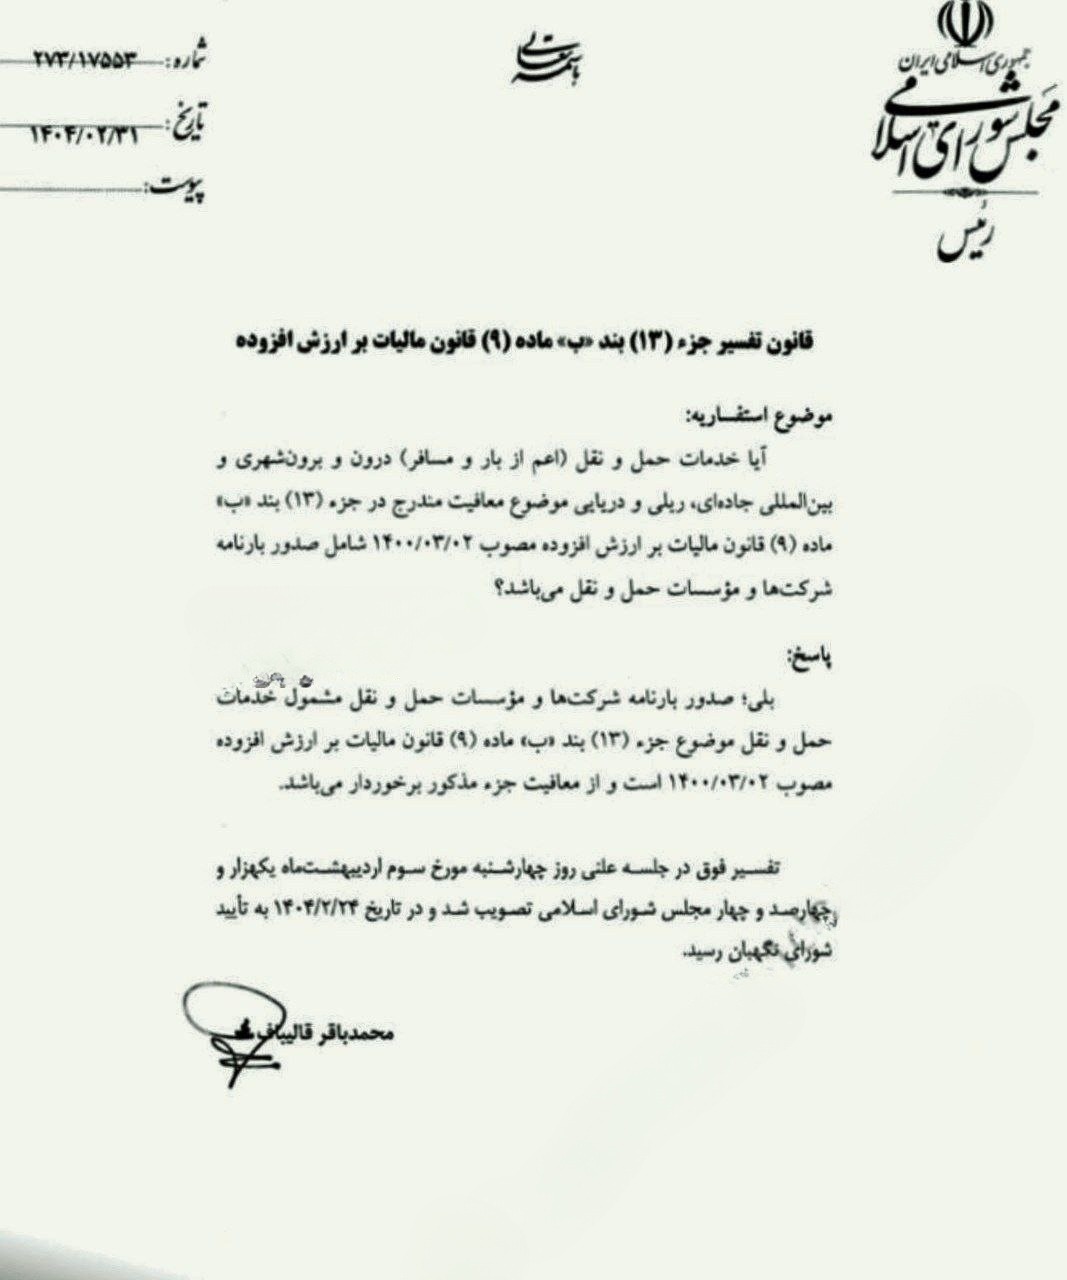 باسمه تعالی
جمهوری اسلامی ایران
مجلس شورای اسلامی
رئیس
شماره: ۲۷۳/۱۷۵۵۳
تاریخ: ۱۴۰۴/۰۲/۳۱
پیوست:
قانون تفسیر جزء (۱۳) بند «ب» ماده (۹) قانون مالیات بر ارزش افزوده
موضوع استفساریه:
آیا خدمات حمل و نقل (اعم از بار و مسافر) درون و برون‌شهری و
بین‌المللی جاده‌ای، ریلی و دریایی موضوع معافیت مندرج در جزء (۱۳) بند «ب»
ماده (۹) قانون مالیات بر ارزش افزوده مصوب ۱۴۰۰/۰۳/۰۲ شامل صدور بارنامه
شرکت‌ها و مؤسسات حمل و نقل می‌باشد؟
پاسخ:
بلی؛ صدور بارنامه شرکت‌ها و مؤسسات حمل و نقل مشمول خدمات
حمل و نقل موضوع جزء (۱۳) بند «ب» ماده (۹) قانون مالیات بر ارزش افزوده
مصوب ۱۴۰۰/۰۳/۰۲ است و از معافیت جزء مذکور برخوردار می‌باشد.
تفسیر فوق در جلسه علنی روز چهارشنبه مورخ سوم اردیبهشت‌ماه یکهزار و
چهارصد و چهار مجلس شورای اسلامی تصویب شد و در تاریخ ۱۴۰۴/۲/۲۴ به تأیید
شورای نگهبان رسید.
محمدباقر قالیباف